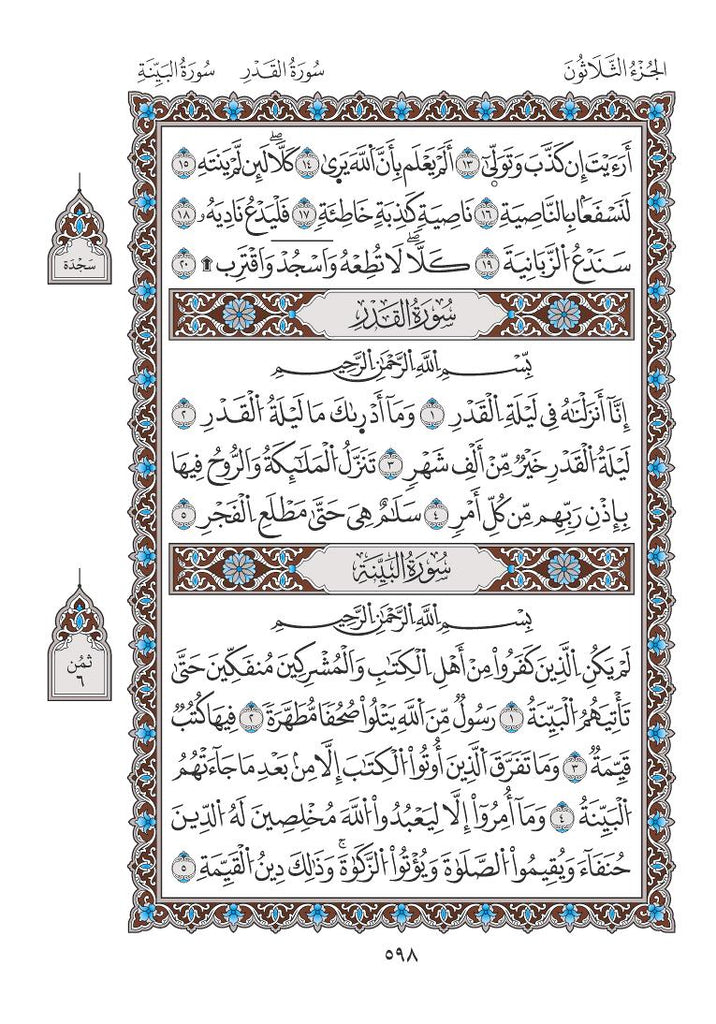 الجُزْءُ الثَّلَاثُونَ
سُورَةُ القَدْرِ سُورَةُ البَيِّنَةِ
أَرَءَيْتَ إِن كَذَّبَ وَتَوَلَّىٰٓ ١٣ أَلَمْ يَعْلَم بِأَنَّ اَللَّهَ يَرَىٰ ١٤ كَلَّاۖ لَئِن لَّمْ يَنتَهِ ١٥
لَنَسْفَعَۢا بِالنَّاصِيَةِ ١٦ نَاصِيَةٖ كَٰذِبَةٍ خَاطِئَةٖ ١٧ فَلْيَدْعُ نَادِيَهُۥ ١٨
سَنَدْعُ اُلزَّبَانِيَةَ ١٩ كَلَّاۖ لَا تُطِعْهُ وَاَسْجُدْ وَاَقْتَرِب ۩ ٢٠
سَجْدَة
سُورَةُ القَدْرِ
بِسْمِ اِللَّهِ اِلرَّحْمَٰنِ اِلرَّحِيمِ
إِنَّآ أَنزَلْنَٰهُ فِى لَيْلَةِ اِلْقَدْرِ ١ وَمَآ أَدْرِىٰكَ مَا لَيْلَةُ اُلْقَدْرِ ٢
لَيْلَةُ اُلْقَدْرِ خَيْرٞ مِّنْ أَلْفِ شَهْرٖ ٣ تَنَزَّلُ اُلْمَلَٰٓئِكَةُ وَالرُّوحُ فِيهَا
بِإِذْنِ رَبِّهِم مِّن كُلِّ أَمْرٖ ٤ سَلَٰمٌ هِىَ حَتَّىٰ مَطْلَعِ اِلْفَجْرِ ٥
سُورَةُ البَيِّنَةِ
بِسْمِ اِللَّهِ اِلرَّحْمَٰنِ اِلرَّحِيمِ
لَمْ يَكُنِ اِلَّذِينَ كَفَرُواْ مِنْ أَهْلِ اِلْكِتَٰبِ وَالْمُشْرِكِينَ مُنفَكِّينَ حَتَّىٰ
تَأْتِيَهُمُ اُلْبَيِّنَةُ ١ رَسُولٞ مِّنَ اَللَّهِ يَتْلُواْ صُحُفٗا مُّطَهَّرَةٗ ٢ فِيهَا كُتُبٞ
قَيِّمَةٞ ٣ وَمَا تَفَرَّقَ اَلَّذِينَ أُوتُواْ اُلْكِتَٰبَ إِلَّا مِنۢ بَعْدِ مَا جَآءَتْهُمُ
اُلْبَيِّنَةُ ٤ وَمَآ أُمِرُوٓاْ إِلَّا لِيَعْبُدُواْ اُللَّهَ مُخْلِصِينَ لَهُ اُلدِّينَ
حُنَفَآءَ وَيُقِيمُواْ اُلصَّلَوٰةَ وَيُؤْتُواْ اُلزَّكَوٰةَۚ وَذَٰلِكَ دِينُ اُلْقَيِّمَةِ ٥
ثمُن
٦
٥٩٨